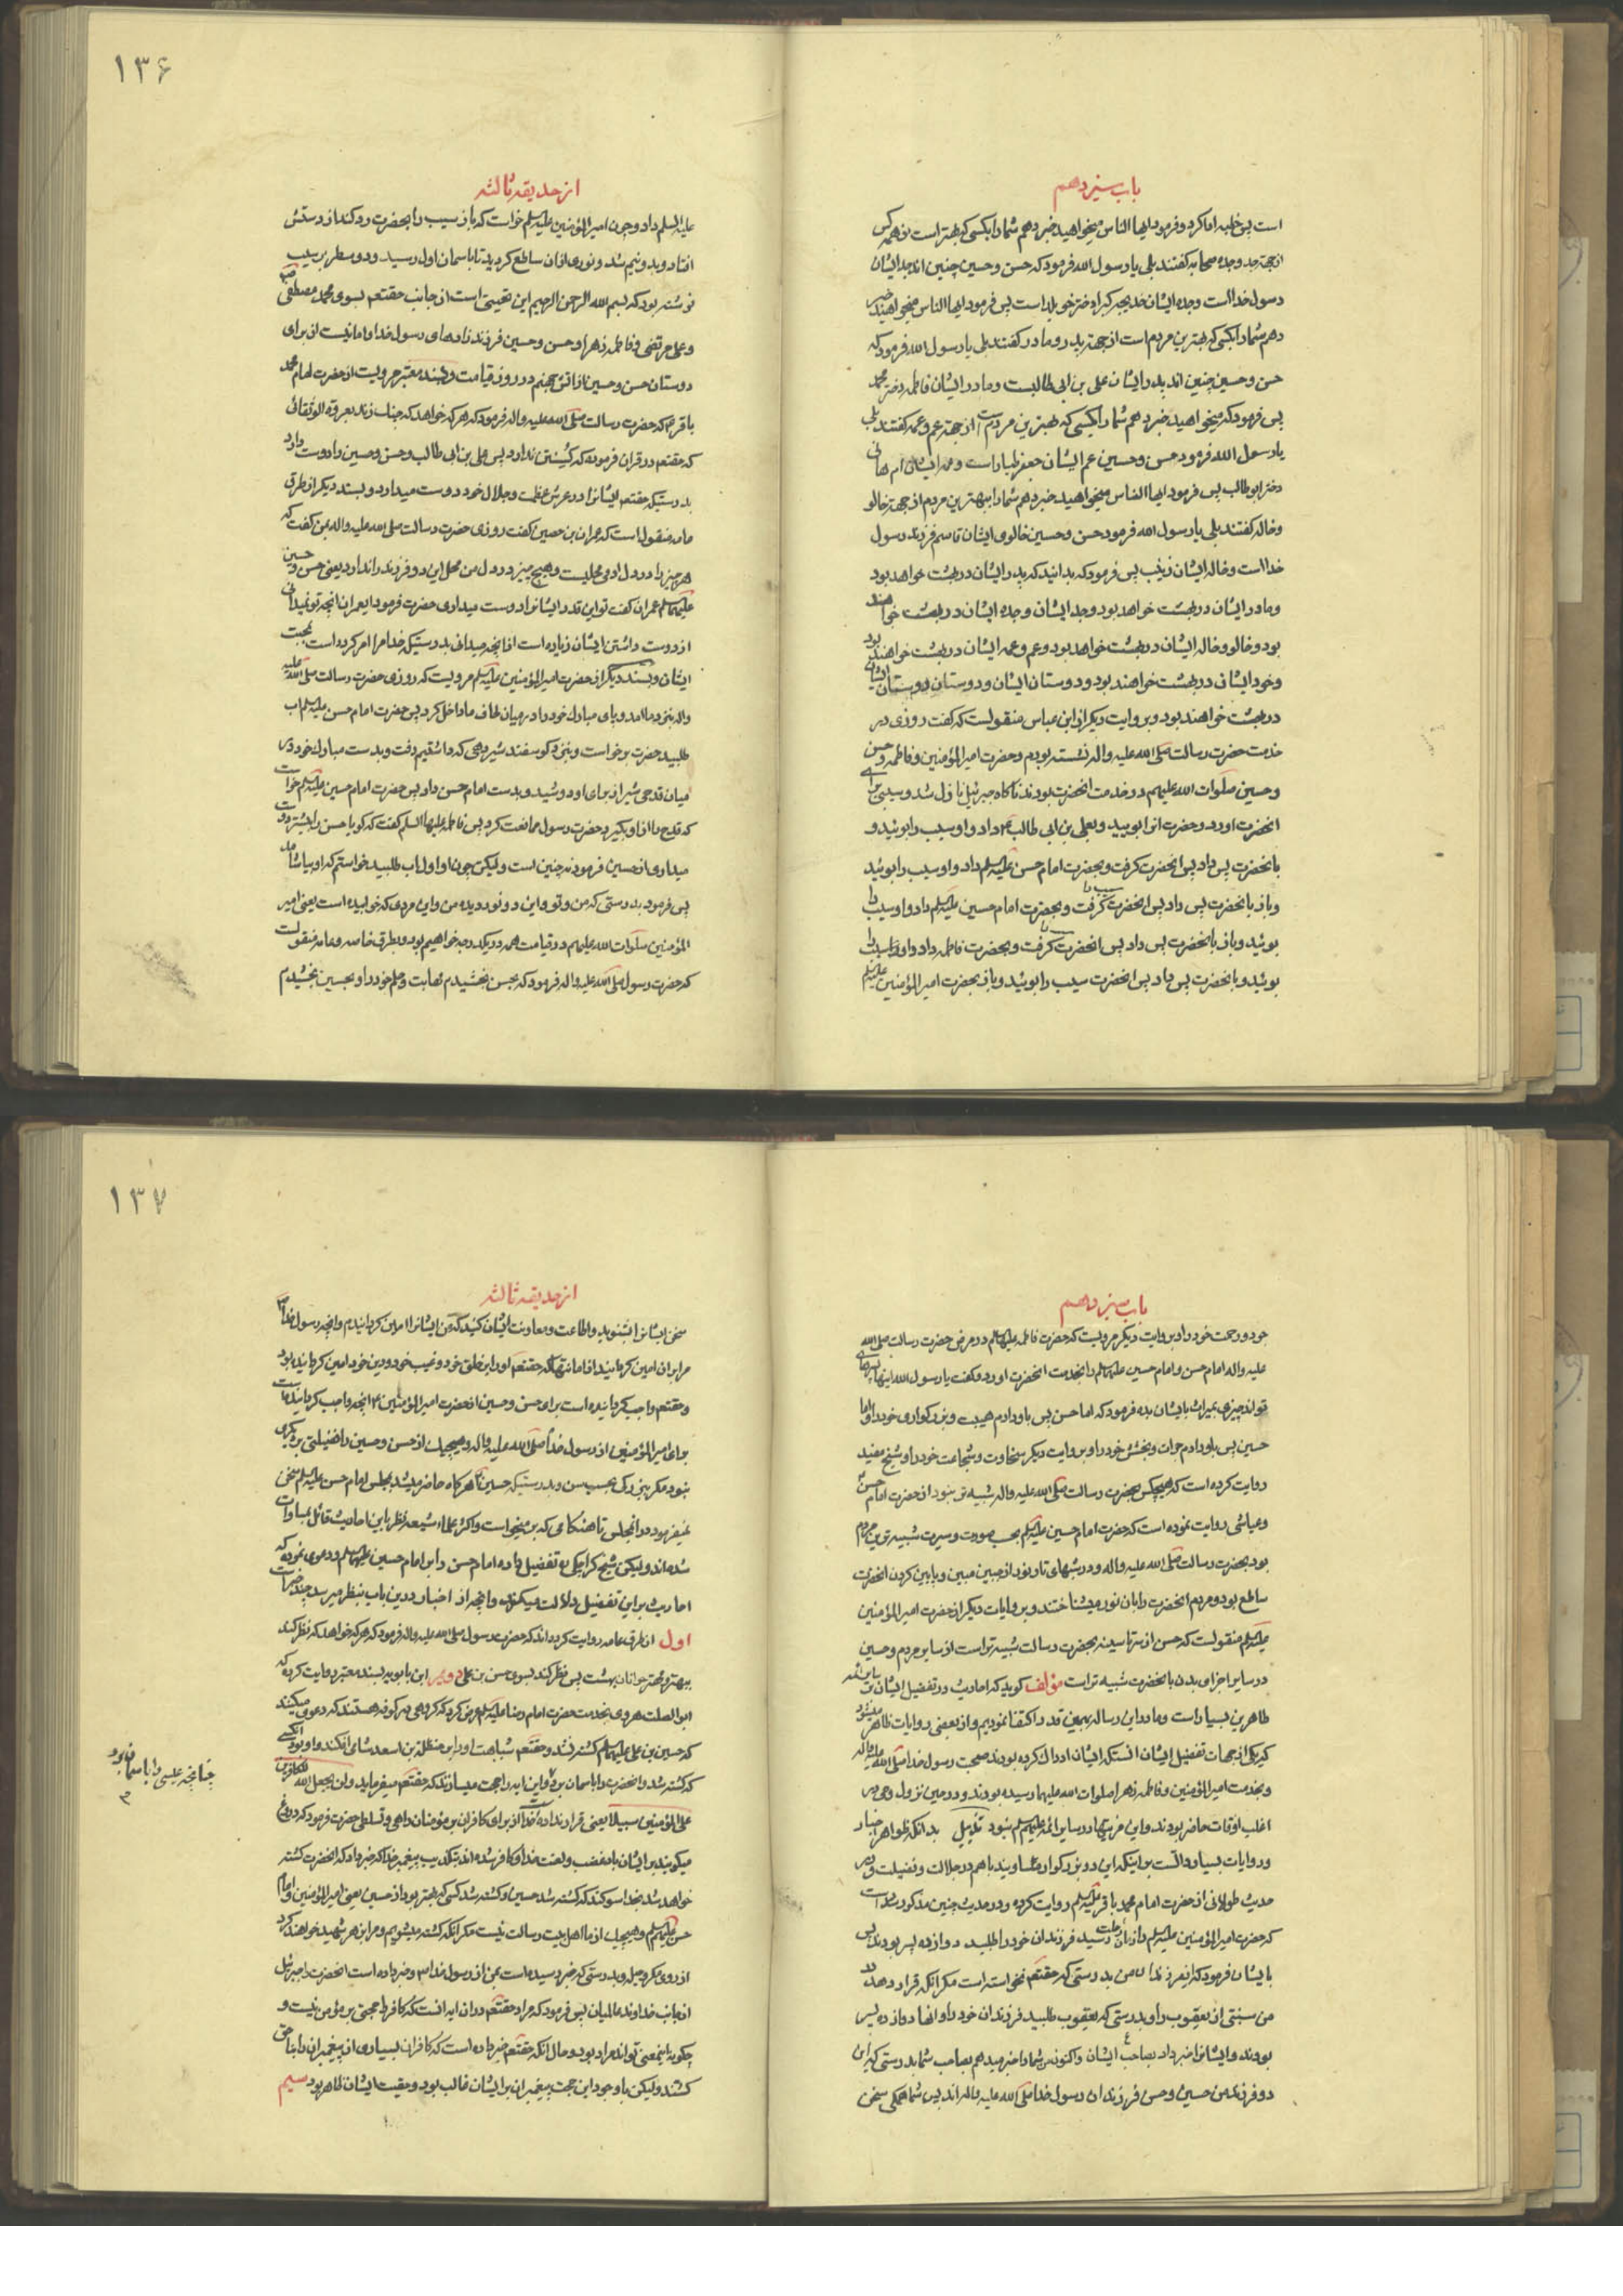 باب سیزدهم
است پس خطبه ادا کرد و فرمود ایها الناس میخواهید خبر دهم شما را بکسی که بهتر است از همه کس
از جهة جد و جده صحابه کفتند بلی یا رسول الله فرمود که حسن و حسین چنین اند جد ایشان
رسول خدا است و جده ایشان خدیجه کبرا دختر خویلد است پس فرمود ایها الناس میخواهید خبر
دهم شما را بکسی که بهترین مردم است از جهة پدر و مادر کفتند بلی یا رسول الله فرمود که
حسن و حسین چنین اند پدر ایشان علی بن ابی طالبست و مادر ایشان فاطمه دختر محمد
پس فرمود که میخواهید خبر دهم شما را بکسی که بهترین مردم است از جهة عم و عمه کفتند بلی
یا رسول الله فرمود حسن و حسین عم ایشان جعفر طیار است و عمه ایشان ام هانی
دختر ابو طالب پس فرمود ایها الناس میخواهید خبر دهم شما را ببهترین مردم از جهة خالو
و خاله کفتند بلی یا رسول الله فرمود حسن و حسین خالوی ایشان قاسم فرزند رسول
خدا است و خاله ایشان زینب پس فرمود که بدانید که پدر ایشان در بهشت خواهد بود
و مادر ایشان در بهشت خواهد بود و جد ایشان و جده ایشان در بهشت خواهند
بود و خالو و خاله ایشان در بهشت خواهد بود و عم و عمه ایشان در بهشت خواهند بود
و خود ایشان در بهشت خواهند بود و دوستان ایشان و دوستان دوستان ایشان
در بهشت خواهند بود و بروایت دیکر از ابن عباس منقولست که کفت روزی در
خدمت حضرت رسالت صلی الله علیه واله نشسته بودم و حضرت امیر المؤمنین و فاطمه و حسن
و حسین صلوات الله علیهم در خدمت انحضرت بودند ناکاه جبرئیل نازل شد و سیبی برای
انحضرت اورد و حضرت انرا بویید و بعلی بن ابی طالب ع داد و او سیب را بوئید و
بانحضرت پس داد پس انحضرت کرفت و بحضرت امام حسن علیه السلم داد و او سیب را بوئید
و باز بانحضرت پس داد پس انحضرت سیب را کرفت و بحضرت امام حسین علیه السلم داد و او سیب را
بوئید و باز بانحضرت پس داد پس انحضرت کرفت و بحضرت فاطمه داد و او سیب را
بوئید و بانحضرت پس داد پس انحضرت سیب را بوئید و باز بحضرت امیر المؤمنین علیه السلم
۱۳۶
از حدیقه ثالثه
علیه السلم داد و چون امیر المؤمنین علیه السلم خواست که باز سیب را بحضرت رد کند از دستش
افتاد و بدو نیم شد و نوری از ان ساطع کردید تا باسمان اول رسید و دو سطر بر سیب
نوشته بود که بسم الله الرحمن الرحیم این تحیتی است از جانب حقتعم بسوی محمد مصطفی
و علی مرتضی و فاطمه زهرا و حسن و حسین فرزند زادهای رسول خدا و امانیست از برای
دوستان حسن و حسین از اتش جهنم در روز قیامت و بسند معتبر مرویست از حضرت امام محمد
باقر ع که حضرت رسالت صلی الله علیه واله فرمود که هر که خواهد که چنک زند بعروة الوثقائی
که حقتعم در قران فرموده که کسستن ندارد پس علی بن ابی طالب و حسن و حسین را دوست دارد
بدرستیکه حقتعم ایشانرا در عرش عظمت و جلال خود دوست میدارد و بسند دیکر از طرق
عامه منقول است که عمران بن حصین کفت روزی حضرت رسالت صلی الله علیه واله بمن کفت که
هر چیز را در دل ادمی محلیست و هیچ چیز در دل من محل این دو فرزند را ندارد یعنی حسن و حسین
علیهما السلم عمران کفت تو این قدر ایشانرا دوست میداری حضرت فرمود ای عمران انچه تو نمیدانی
از دوست داشتن ایشان زیاده است از انچه میدانی بدرستیکه خدا مرا امر کرده است بمحبت
ایشان و بسند دیکر از حضرت امیر المؤمنین علیه السلم مرویست که روزی حضرت رسالت صلی الله علیه
واله بنزد ما امد و پای مبارک خود را در میان لحاف ما داخل کرد پس حضرت امام حسن علیه السلم اب
طلبید حضرت برخواست و بنزد کوسفند شیردهی که داشتیم رفت و بدست مبارک خود در
میان قدحی شیر از برای او دوشید و بدست امام حسن داد پس حضرت امام حسین علیه السلم خواست
که قدح را از او بکیرد حضرت رسول ممانعت کرد پس فاطمه علیها السلم کفت که کویا حسن را بیشتر دوست
میداری از حسین فرمود نه چنین است ولیکن چون او اول اب طلبید خواستم که او بیاشامد
پس فرمود بدرستی که من و تو و این دو نور دیده من و این مردی که خوابیده است یعنی امیر
المؤمنین صلوات الله علیهم در قیامت همه در یکدرجه خواهیم بود و بطرق خاصه و عامه منقولست
که حضرت رسول صلی الله علیه واله فرمود که بحسن بخشیدم مهابت و حلم خود را و بحسین بخشیدم
باب سیزدهم
جود و رحمت خود را و بروایت دیکر مرویست که حضرت فاطمه علیها السلم در مرض حضرت رسالت صلی الله
علیه واله امام حسن و امام حسین علیهما السلم را بخدمت انحضرت اورد و کفت یا رسول الله اینها پسرهای
تواند چیزی بمیراث بایشان بده فرمود که اما حسن پس باو دادم هیبت و بزرکواری خود را و اما
حسین پس باو دادم جرات و بخشش خود را و بروایت دیکر سخاوت و شجاعت خود را و شیخ مفید
روایت کرده است که هیچکس بحضرت رسالت صلی الله علیه واله شبیه تر نبود از حضرت امام حسن ع
و عیاشی روایت نموده است که حضرت امام حسین علیه السلم بحسب صورت و سیرت شبیه ترین مردم
بود بحضرت رسالت صلی الله علیه واله و در شبهای تار نور از جبین مبین و پایین کردن انحضرت
ساطع بود و مردم انحضرت را بان نور میشناختند و بروایات دیکر از حضرت امیر المؤمنین
علیه السلم منقولست که حسن از سر تا سینه بحضرت رسالت شبیه تر است از سایر مردم و حسین
در سایر اجزای بدن بانحضرت شبیه تر است مؤلف کوید که احادیث در تفضیل ایشان بر باقی ائمه
طاهرین بسیار است و ما در این رساله بهمین قدر اکتفا نمودیم و از بعضی روایات ظاهر میشود
که یکی از جهات تفضیل ایشان انستکه ایشان ادراک کرده بودند صحبت رسول خدا صلی الله علیه واله
و بخدمت امیر المؤمنین و فاطمه زهرا صلوات الله علیهما رسیده بودند و در حین نزول وحی در
اغلب اوقات حاضر بودند و این مزیتها در سایر ائمه علیهم السلم نبود تذییل بدانکه ظواهر اخبار
و روایات بسیار دالست بر اینکه این دو بزرکوار مساویند با هم در جلالت و فضیلت و در
حدیث طولانی از حضرت امام محمد باقر علیه السلم روایت کرده و در حدیث چنین مذکور شده است
که حضرت امیر المؤمنین علیه السلم را زمان رحلت رسید فرزندان خود را طلبید دوازده پسر بودند پس
بایشان فرمود که ای فرزندان من بدرستی که حقتعم نخواسته است مکر انکه قرار دهد در
من سنتی از یعقوب را و بدرستی که یعقوب طلبید فرزندان خود را و انها دوازده پسر
بودند و ایشانرا خبر داد بصاحب ایشان و اکنون من شما را خبر میدهم بصاحب شما بدرستی که این
دو فرزند من حسین و حسن فرزندان رسول خدا صلی الله علیه واله اند پس شما همکی سخن
۱۳۷
از حدیقه ثالثه
سخن ایشانرا بشنوید و اطاعت و معاونت ایشان کنید که من ایشانرا امین کردانیدم و انچه رسول خدا ص
مرا بران امین کردانید از امانتهائیکه حقتعم او را بر خلق خود و غیب خود و دین خود امین کردانیده بود
و حقتعم واجب کردانیده است برای حسن و حسین از حضرت امیر المؤمنین ع انچه واجب کردانیده است
برای امیر المؤمنین از رسول خدا صلی الله علیه واله و هیچیک از حسن و حسین را فضیلتی بر دیکری
نبود مکر بزرکی بحسب سن و بدرستیکه حسین ع هرکاه حاضر میشد بمجلس امام حسن علیه السلم سخن
نمیفرمود در انمجلس تا هنکامی که برمیخواست و اکثر علماء شیعه نظر باین احادیث قائل بمساوات
شده اند ولیکن شیخ کراجکی ره تفضیل داده امام حسن را بر امام حسین علیهما السلم و دعوی نموده که
احادیث بر این تفضیل دلالت میکند و انچه از اخبار در این باب بنظر میرسد چند خبر است
اول از طرق عامه روایت کرده اند که حضرت رسول صلی الله علیه واله فرمود که هر که خواهد که نظر کند
ببهتر و مهتر جوانان بهشت پس نظر کند بسوی حسن بن علی دویم ابن بابویه بسند معتبر روایت کرده که
ابو الصلت هروی بخدمت حضرت امام رضا علیه السلم عرض کرد که کروهی در کوفه هستند که دعوی میکنند
که حسین بن علی علیهما السلم کشته نشد و حقتعم شباهت او را بر حنظلة بن اسعد شامی افکند و او بود انکسی
که کشته شد و انحضرت را باسمان برد و این ایه را حجت میسازند که حقتعم میفرماید ولن یجعل الله للکافرین
علی المؤمنین سبیلا یعنی قرار نداده است خدا از برای کافران بر مؤمنان راهی و تسلطی حضرت فرمود که دروغ
میکویند بر ایشان باد غضب و لعنت خدا و کافر شده اند بتکذیب پیغمبر خدا که خبر داد که انحضرت کشته
خواهد شد بخدا سوکند که کشته شد حسین و کشته شد کسی که بهتر بود از حسین یعنی امیر المؤمنین و امام
حسن علیهما السلم و هیچیک از ما اهل بیت رسالت نیست مکر انکه کشته میشویم و مرا بزهر شهید خواهند کرد
از روی مکر و حیله و بدرستی که خبر رسیده است بمن از رسول خدا ص و خبر داده است انحضرت را جبرئیل
از جانب خداوند عالمیان پس فرمود که مراد حقتعم در ان ایه انست که کافر را حجتی بر مؤمن نیست و
چکونه اینمعنی تواند مراد بود و حال انکه حقتعم خبر داده است که کافران بسیاری از پیغمبران را بناحق
کشتند ولیکن باوجود این حجت پیغمبران بر ایشان غالب بود و حقیت ایشان ظاهر بود سیم
چنانچه عیسی را باسمان برد